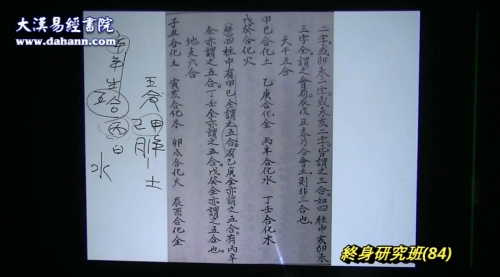 大漢易經書院
www.dahann.com
二字或卯未二字或未亥二字皆謂之三合。如四柱中亥卯未
三字全謂之會局。辰戌丑未乃合會土則非三合也。
天干五合
甲己合化土 乙庚合化金 丙辛合化水 丁壬合化木
戊癸合化火
四柱中有甲己全謂之五合。有乙庚全亦謂之五合。有丙辛
全亦謂之五合。丁壬全亦謂之五合。戊癸全亦謂之五合也。
地支六合
子丑合化土 寅亥合化木 卯戌合化火 辰酉合化金
五合
甲 土
己
年生
五合
丙日
水
終身研究班(84)